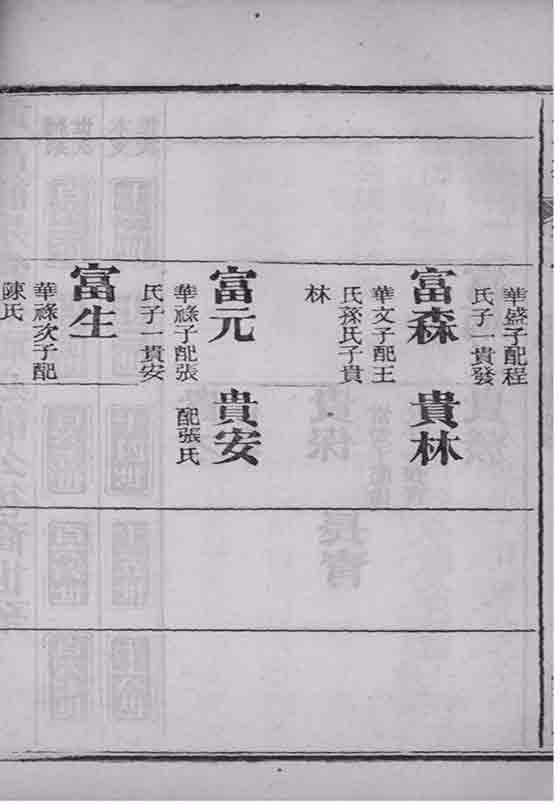 華盛子配程
氏子一貴發
富森
貴林
華文子配王
氏孫氏子貴
林
富元
貴安
華祿子配張
氏子一貴安
配張氏
富生
華祿次子配
陳氏